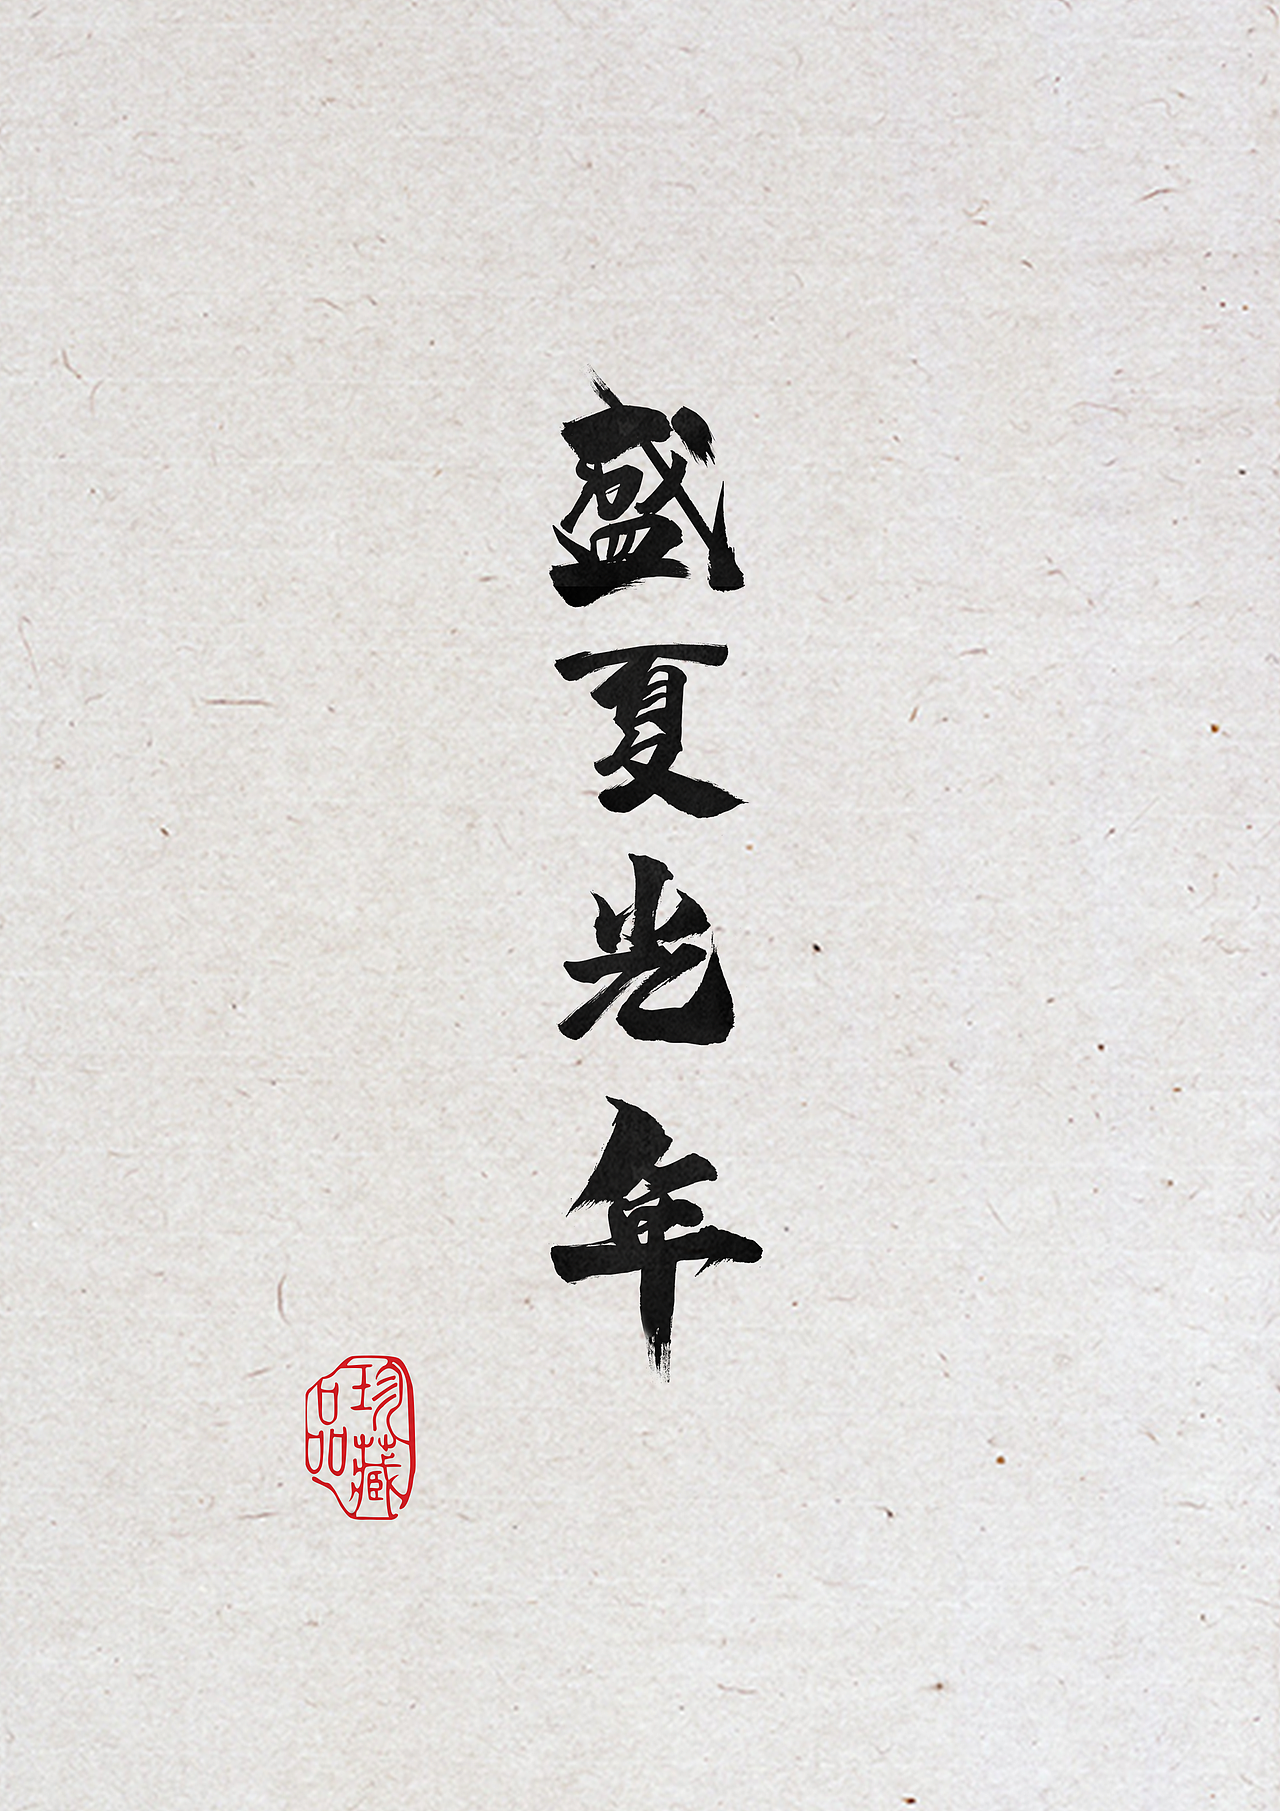 盛夏光年
珍藏
品